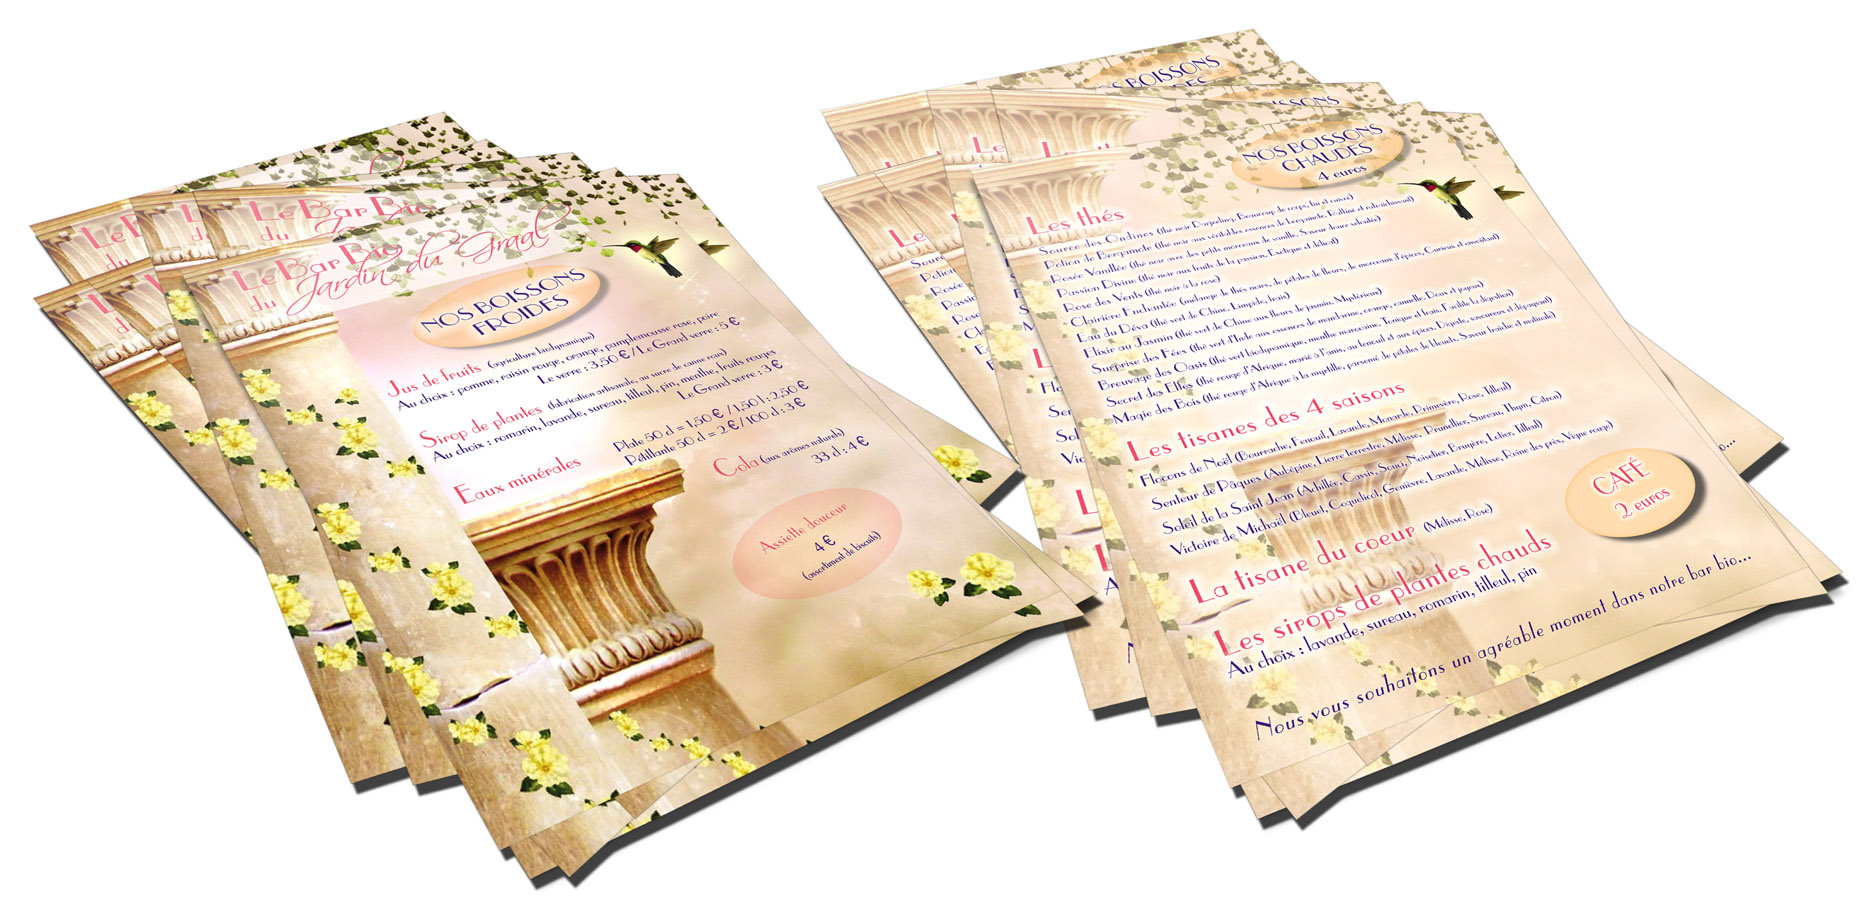 Le Bar Bio
du Jardin du Graal
NOS BOISSONS
FROIDES
Jus de fruits (agriculture biodynamique)
Au choix : pomme, raisin rouge, orange, pamplemousse rose, poire
Le verre : 3,50 € / Le Grand verre : 5 €
Sirop de plantes (fabrication artisanale, au sucre de canne roux)
Au choix : romarin, lavande, sureau, tilleul, pin, menthe, fruits rouges
Le Grand verre : 3 €
Eaux minérales
Plate 50 cl = 1,50 € / 1,50 l : 2,50 €
Pétillante 50 cl = 2 € / 100 cl : 3 €
Cola (aux arômes naturels)
33 cl : 4 €
Assiette douceur
4 €
(assortiment de biscuits)
NOS BOISSONS
CHAUDES
4 euros
Les thés
Source des Ondines (thé noir Darjeeling. Beaucoup de corps, fin et cuivré)
Potion de Bergamote (thé noir aux véritables essences de bergamote. Raffiné et rafraîchissant)
Rosée Vanillée (thé noir avec des petits morceaux de vanille. Saveur douce salutée)
Passion Divine (thé noir aux fruits de la passion. Exotique et délicat)
Rose des Vents (thé noir à la rose)
Clairière Enchantée (mélange de thés noirs, de pétales de fleurs, de morceaux d'épices. Curieux et envoûtant)
Eau du Déva (thé vert de Chine. Limpide, frais)
Elixir au Jasmin (thé vert de Chine aux fleurs de jasmin. Mystérieux)
Surprise des Fées (thé vert d'Inde aux essences de mandarine, orange, cannelle. Doux et joyeux)
Breuvage des Oasis (thé vert biodynamique, menthe marocaine. Tonique et frais. Facilite la digestion)
Secret des Elfes (thé rouge d'Afrique, marié à l'anis, au fenouil et aux épices. Digeste, savoureux et dépaysant)
Magie des Bois (thé rouge d'Afrique à la myrtille, parsemé de pétales de bleuets. Saveur fraîche et matinale)
Les tisanes des 4 saisons
Flocons de Noël (Bourrache, Fenouil, Lavande, Monarde, Primevère, Rose, Tilleul)
Senteur de Pâques (Aubépine, Lierre terrestre, Mélisse, Prunellier, Sureau, Thym, Cédrat)
Soleil de la Saint Jean (Achillée, Cassis, Souci, Noisetier, Bruyère, Lotier, Tilleul)
Victoire de Michaël (Bleuet, Coquelicot, Genièvre, Lavande, Mélisse, Reine des prés, Vigne rouge)
CAFÉ
2 euros
La tisane du coeur (Mélisse, Rose)
Les sirops de plantes chauds
Au choix : lavande, sureau, romarin, tilleul, pin
Nous vous souhaitons un agréable moment dans notre bar bio...